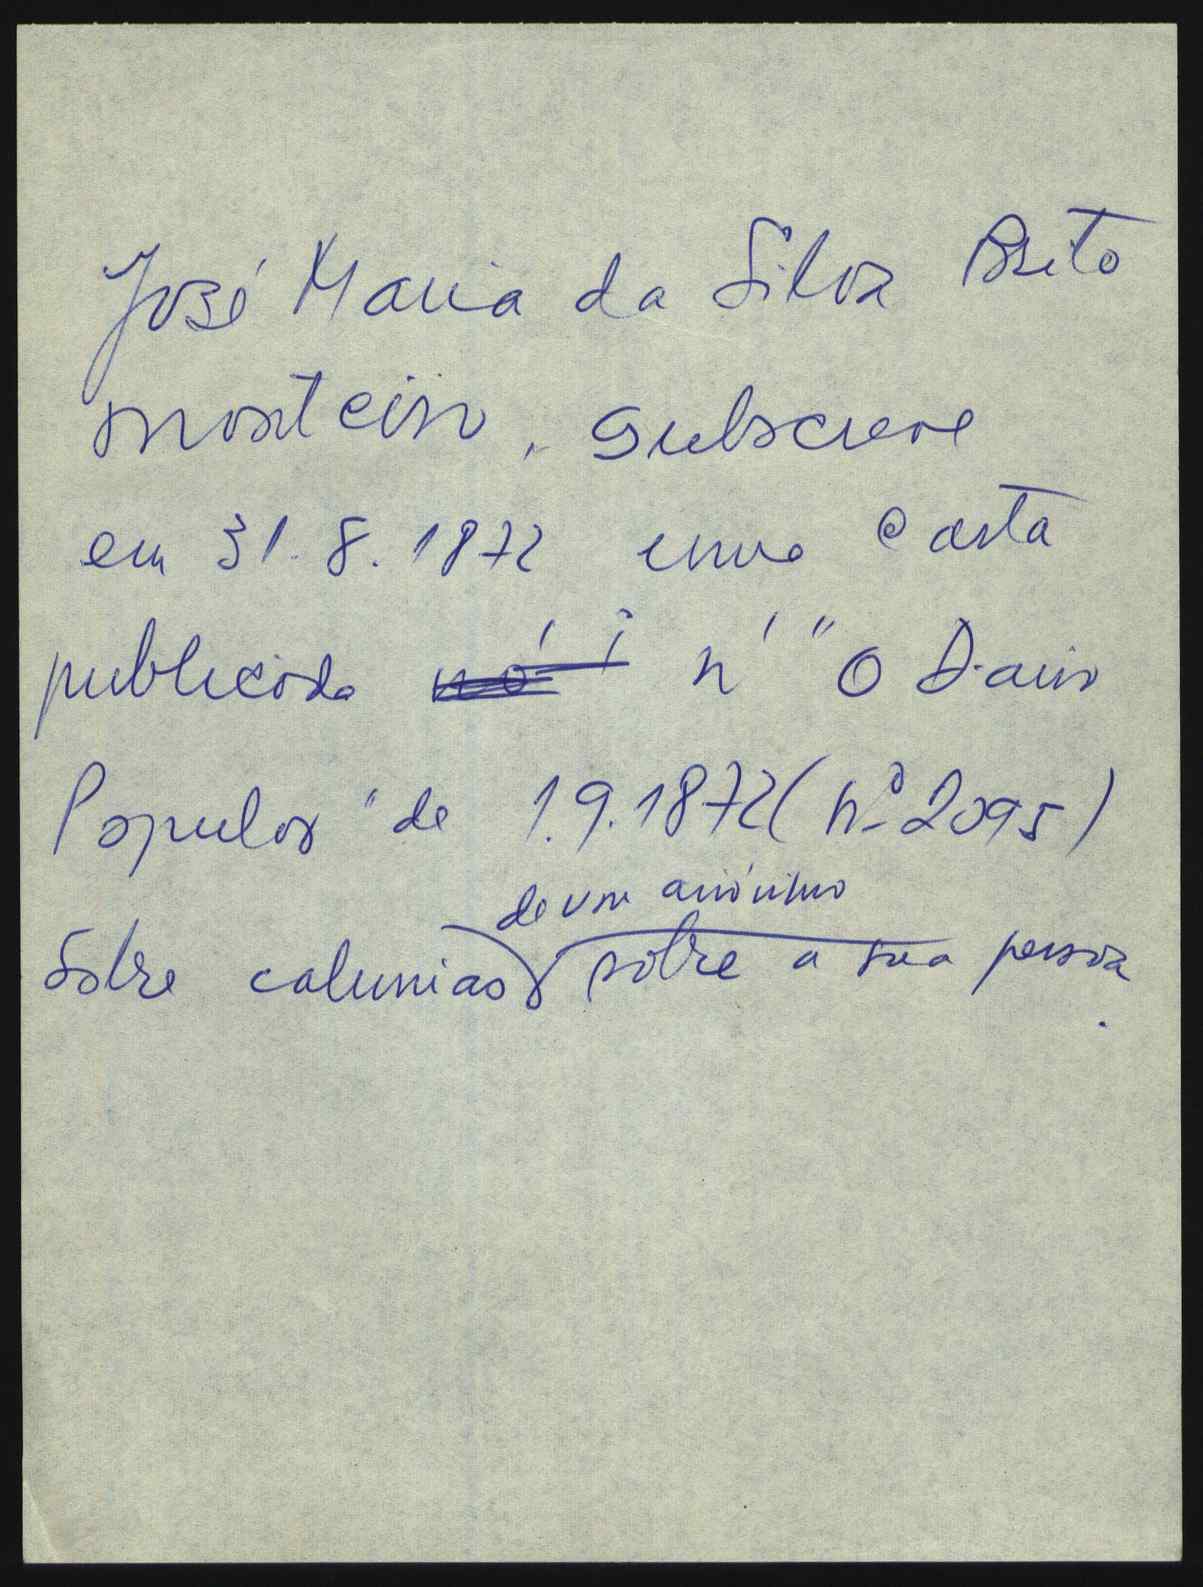 José Maria da Silva Brito
Monteiro, subscreve
em 31.8.1872 uma carta
publicada n' "O Diario
Popular" de 1.9.1872 (nº 2095)
de um anónimo
sobre calunias sobre a sua pessoa.